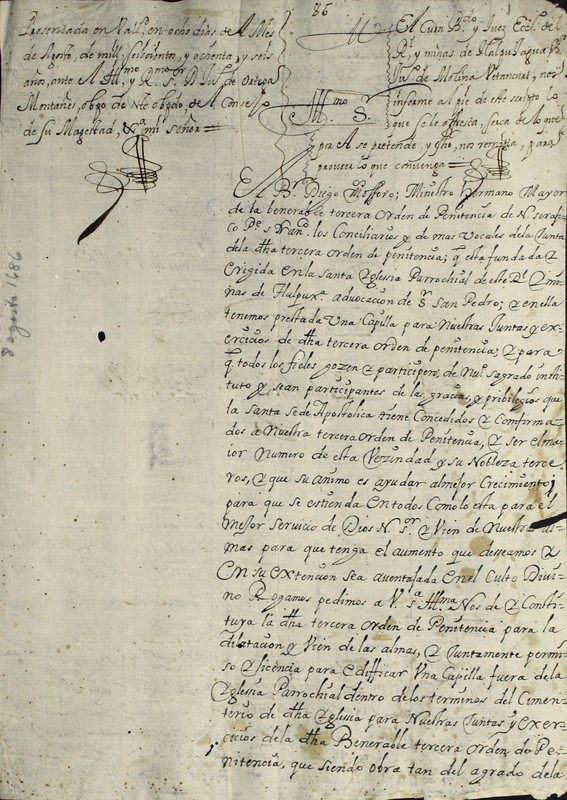 86
Presentada en Valld. en ocho dias de el Mes
de Agosto, de mill, seiscientos, y ochenta, y seis
años, ante el Illmo. y Rmo. Sor. D. Juo. de Ortega
Montañes, obpo. de este obpdo. de el Consejo
de su Magestad, mi señor =
El Cura Bdo. y Juez Ecco. de el
Rl. y minas de Tlalpuxagua Br.
Ju. de Molina Vetancur, nos
informe al pie de este escripto lo
que se le ofresca, serca de lo que
por el se pretende, y fho, nos remitira, para
proveer lo que convenga =
Illmo. Sr.
El Br. Diego Ministro Hermano Mayor
de la benerable tercera Orden de Penitencia de N. serafi-
co Pe. S Franco. los Conciliarios y de mas Vocales de la Junta
de la dha tercera orden de penitencia; q esta fundada y
Erigida en la santa Yglesia Parrochial de este Rl. y mi-
nas de Tlalpuxa. advocacion de Sr. San Pedro; y en ella
tenemos prestada Una Capilla para Nuestras Juntas y ex-
ercicios de dha tercera orden de penitencia; y para
q todos los fieles gozen y participen de nuo. sagrado insti-
tuto y sean participantes de las gracias, y pribilegios que
la santa sede Apostolica tiene Concedidos y Confirma-
dos a Nuestra tercera Orden de Penitencia, y ser el ma-
ior Numero de esta Vezindad y su Nobleza terce-
ros, y que su animo es ayudar al mejor Crecimiento
para que se estienda En todos Como lo esta para el
mejor servicio de Dios N. sor. y Vien de Nuestras al-
mas para que tenga el aumento que deseamos y
En su extencion sea aventajada En el Culto Divi-
no Rogamos pedimos a V. sa. Illma. Nos de y Consti-
tuya la dha tercera orden de Penitencia para la
dilatacion y Vien de las almas, y Juntamente permi-
so y licencia para Edifficar Una Capilla fuera de la
Yglesia Parrochial dentro de los terminos del Cimen-
terio de dha Yglesia para Nuestras Juntas y Exer-
cicios de la dha Benerable tercera orden de Pe-
nitencia, que siendo obra tan del agrado de la
8 agosto 1686